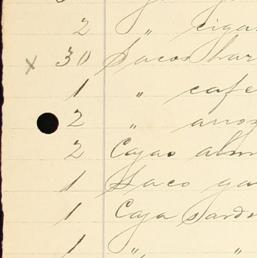 2 " ciga
x 30 Sacos har
1 " cafe
2 " arroz
2 Cajas alm
1 Saco ga
1 Caja Sard
1 " "